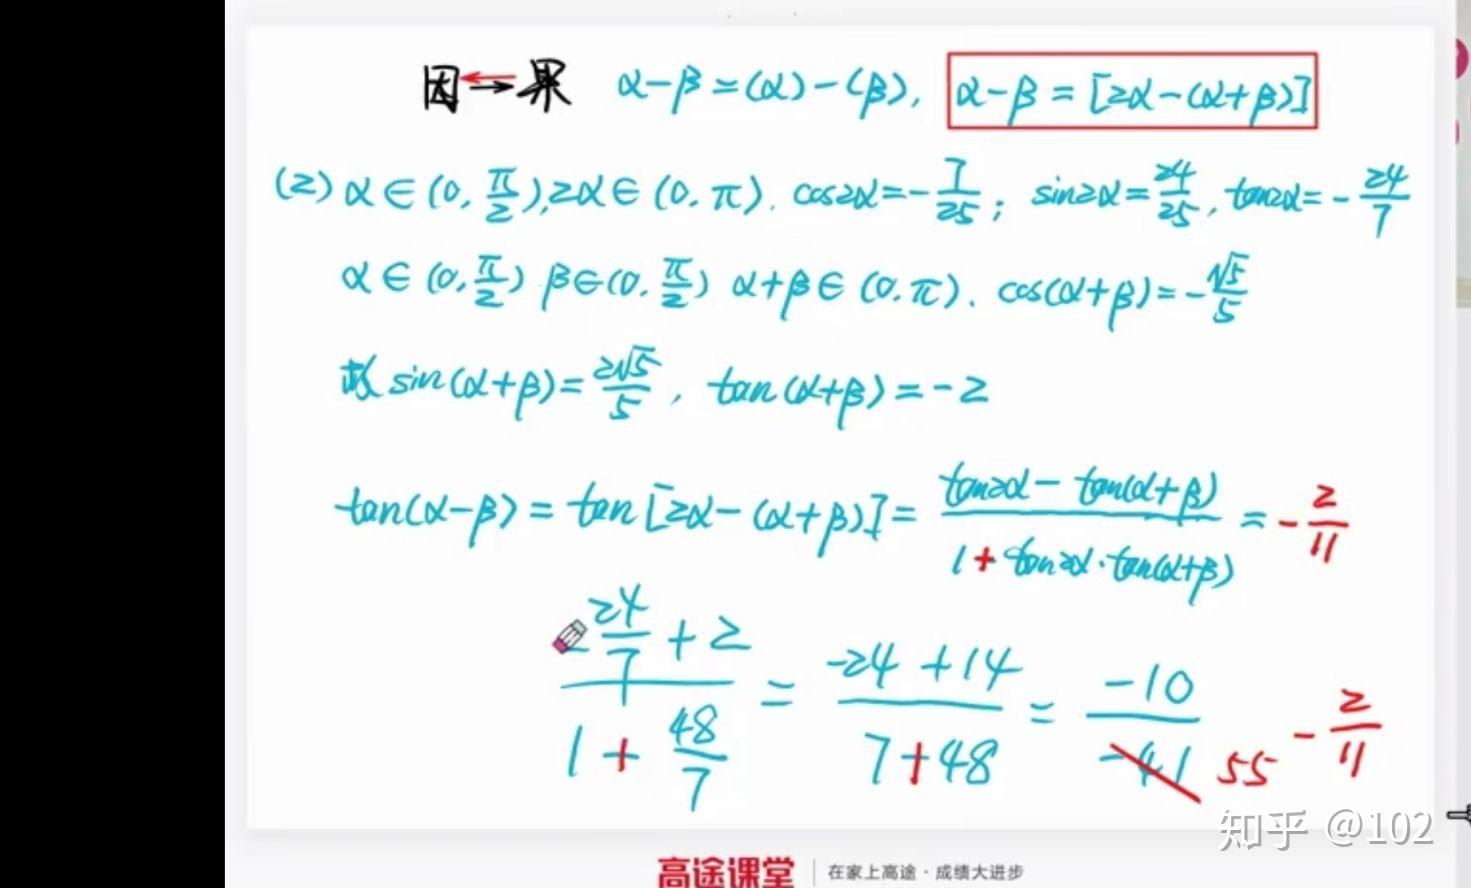 因⇄果 α-β=(α)-(β), α-β=[2α-(α+β)]
(2) α∈(0,π/2),2α∈(0,π). cos2α=-7/25; sin2α=24/25, tan2α=-24/7
α∈(0,π/2) β∈(0,π/2) α+β∈(0,π). cos(α+β)=-√5/5
故 sin(α+β)=2√5/5, tan(α+β)=-2
tan(α-β)=tan[2α-(α+β)]=(tan2α-tan(α+β))/(1+tan2α·tan(α+β))=-2/11
(-24/7+2)/(1+48/7)=(-24+14)/(7+48)=-10/-41 55 -2/11
知乎 @102
高途课堂 | 在家上高途·成绩大进步